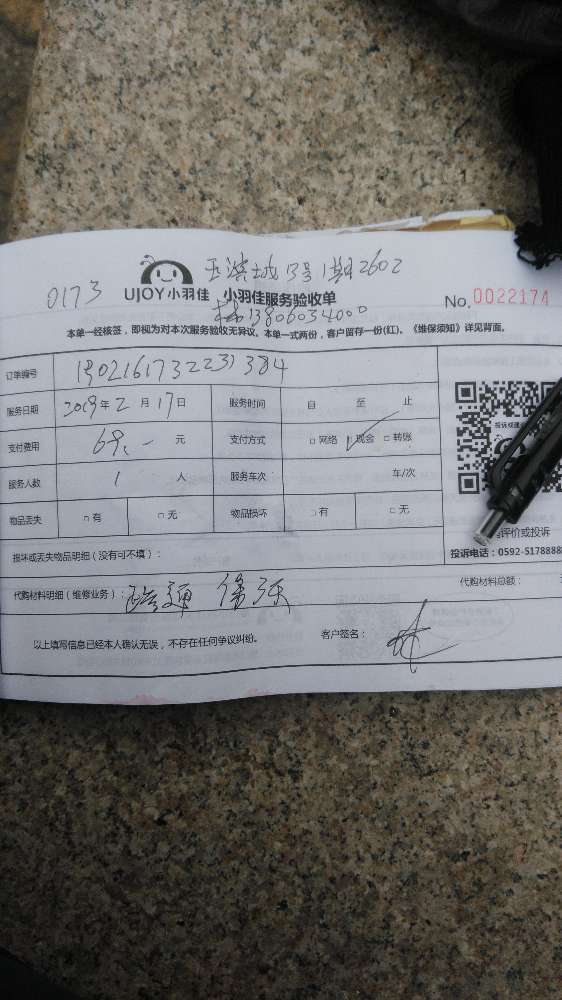 0173
13号1期2602
UJOY小羽佳 小羽佳服务验收单
13806034000
No. 0022174
本单一经核签，即视为对本次服务验收无异议。本单一式两份，客户留存一份(红)、《维保须知》详见背面。
订单编号
服务日期 2019年2月17日 服务时间 自 至 止
支付费用 69.- 元 支付方式 □网络 □现金 □转账
服务人数 1 人 服务车次 车/次
物品丢失 □有 □无 物品损坏 □有 □无
评价或投诉
投诉电话：0592-5178888
损坏或丢失物品明细（没有可不填）：
代购材料明细（维修业务）： 疏通
代购材料总额：
以上填写信息已经本人确认无误，不存在任何争议纠纷。 客户签名：